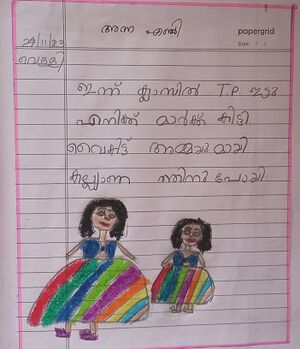 അന്ന എമി
papergrid
Date: / /
24/11/23
വെള്ളി
ഇന്ന് ക്ലാസിൽ T.P. ഇട്ടു
എനിക്ക് മാർക്ക് കിട്ടി.
വൈകിട്ട് അമ്മയുമായി
കല്ല്യാണ ത്തിനു പോയി.